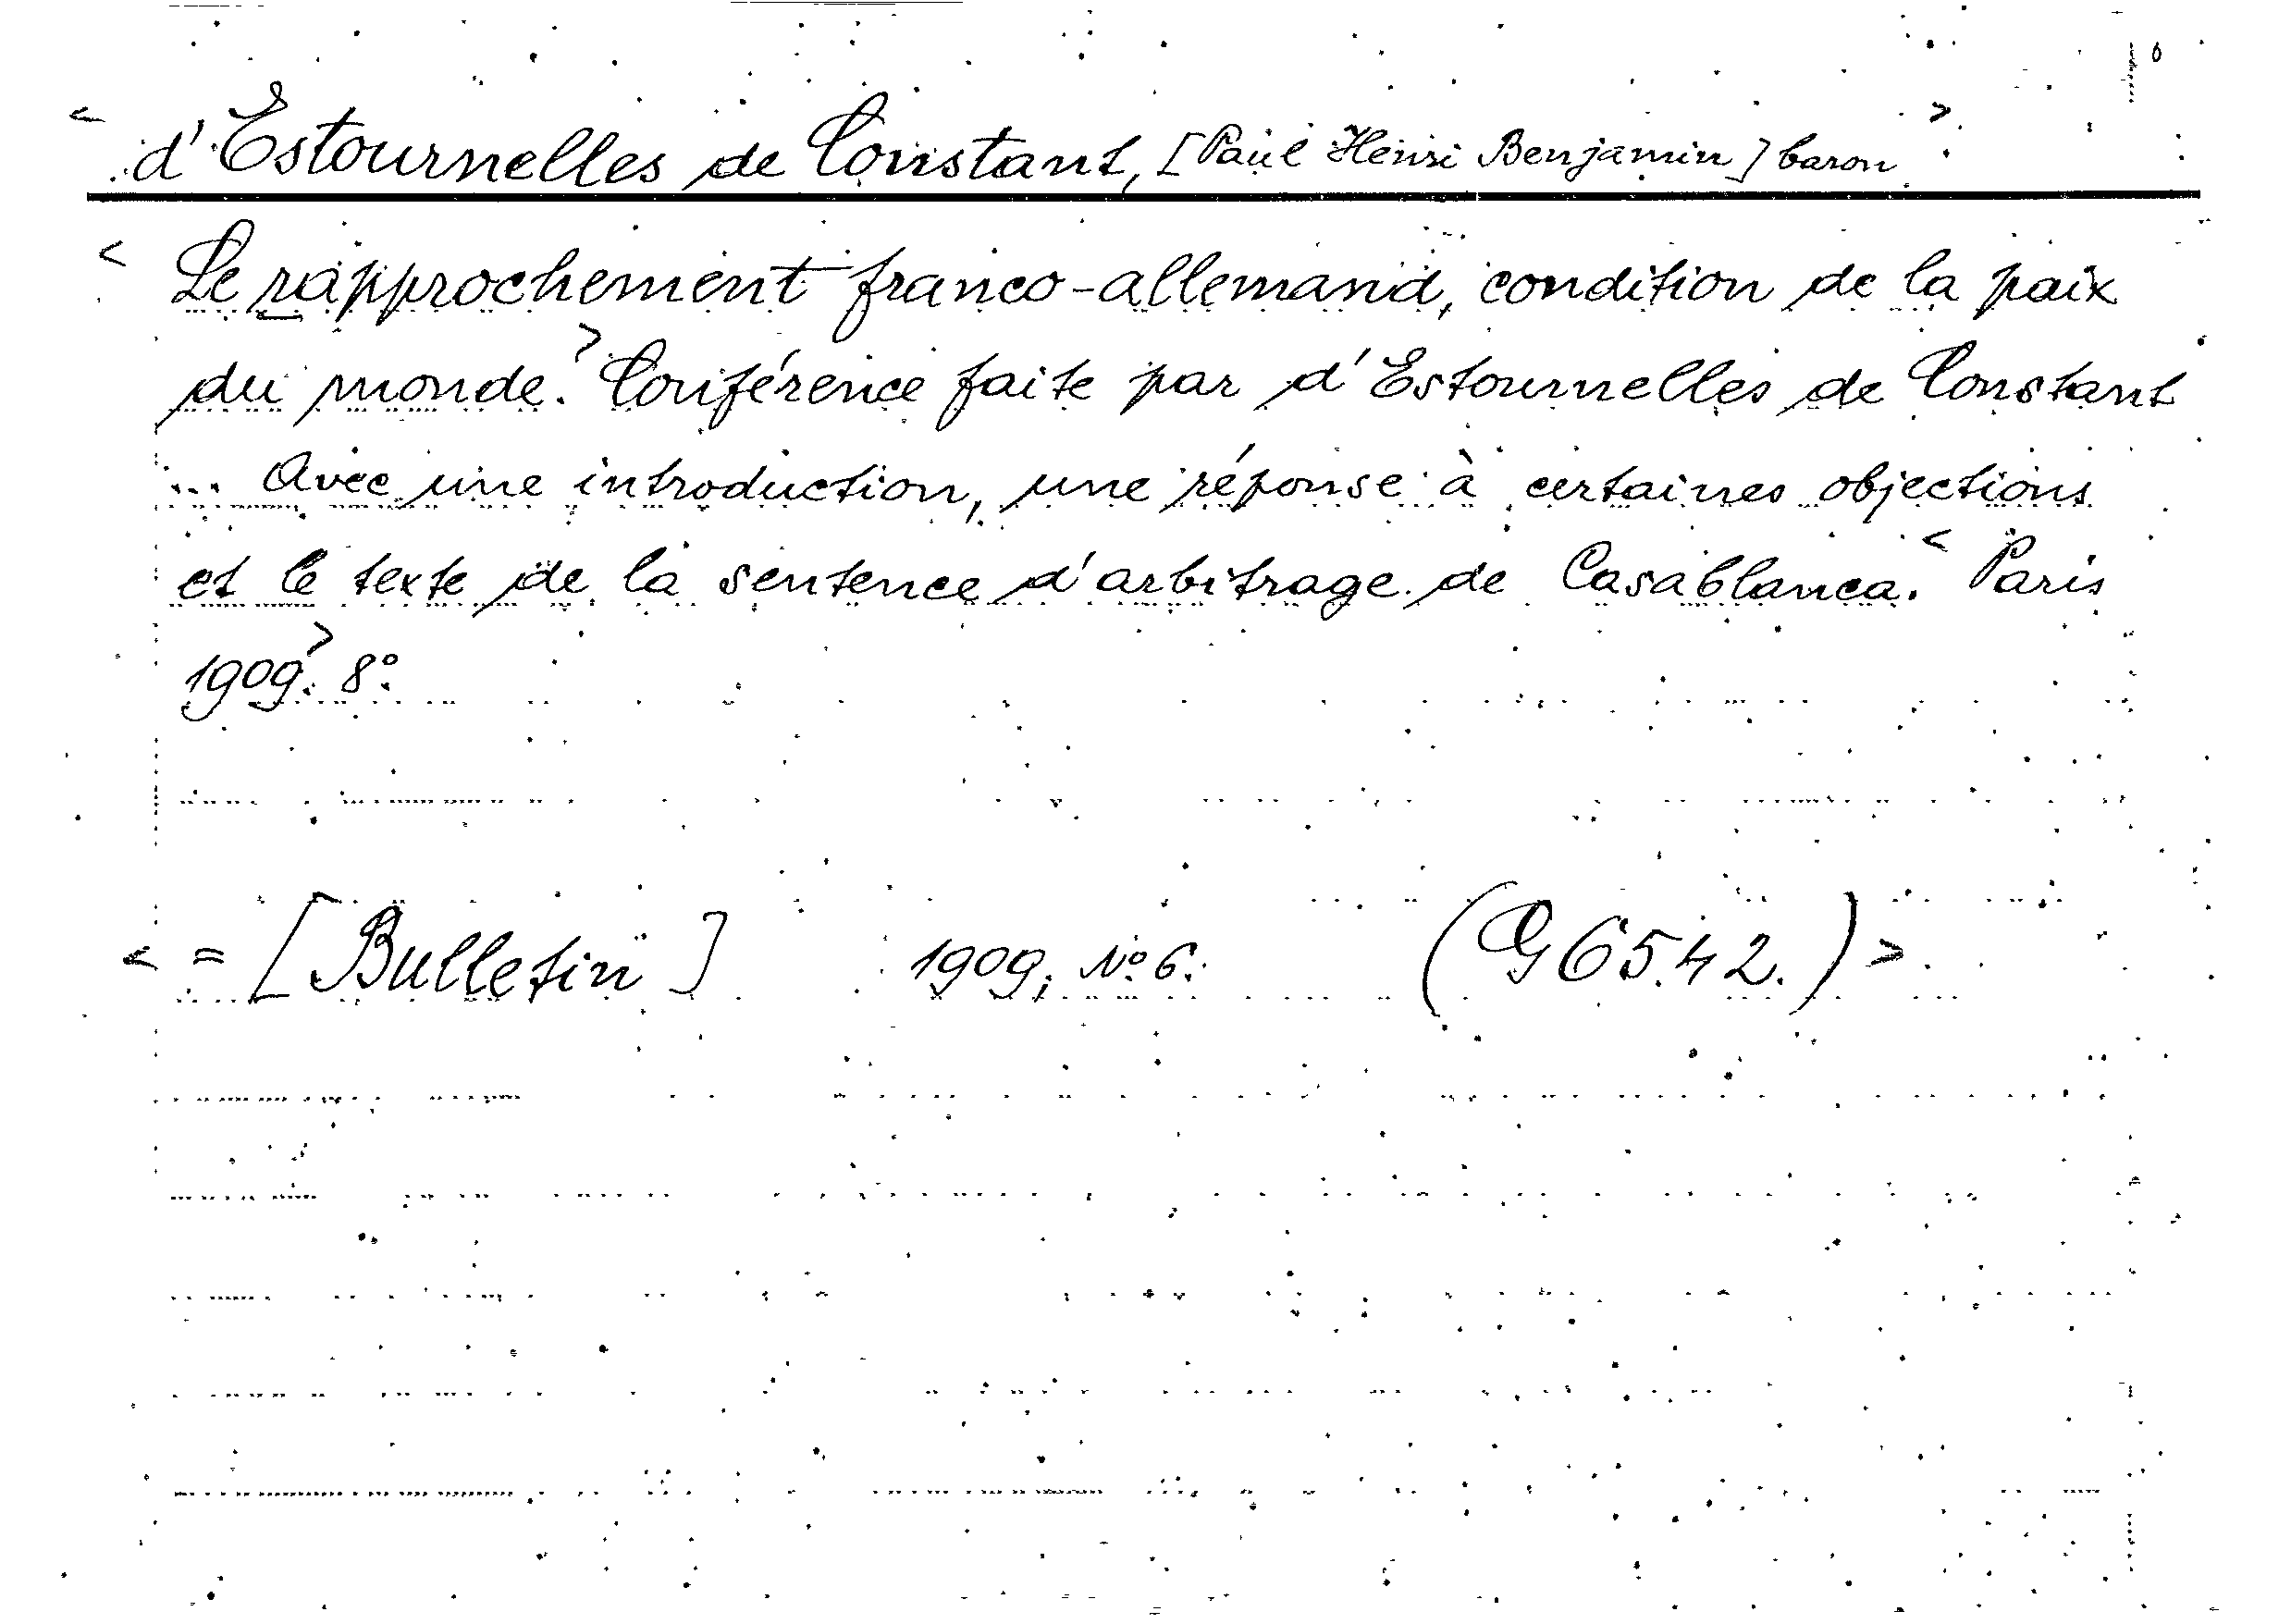 < d'Estournelles de Constant, [Paul Henri Benjamin] baron >
< Le rapprochement franco-allemand, condition de la paix
du monde.> Conférence faite par d'Estournelles de Constant
... Avec une introduction, une réponse à certaines objections
et le texte de la sentence d'arbitrage de Casablanca. < Paris
1909.> 8°.
< = [Bulletin] 1909, No 6. (G 65.42.) >